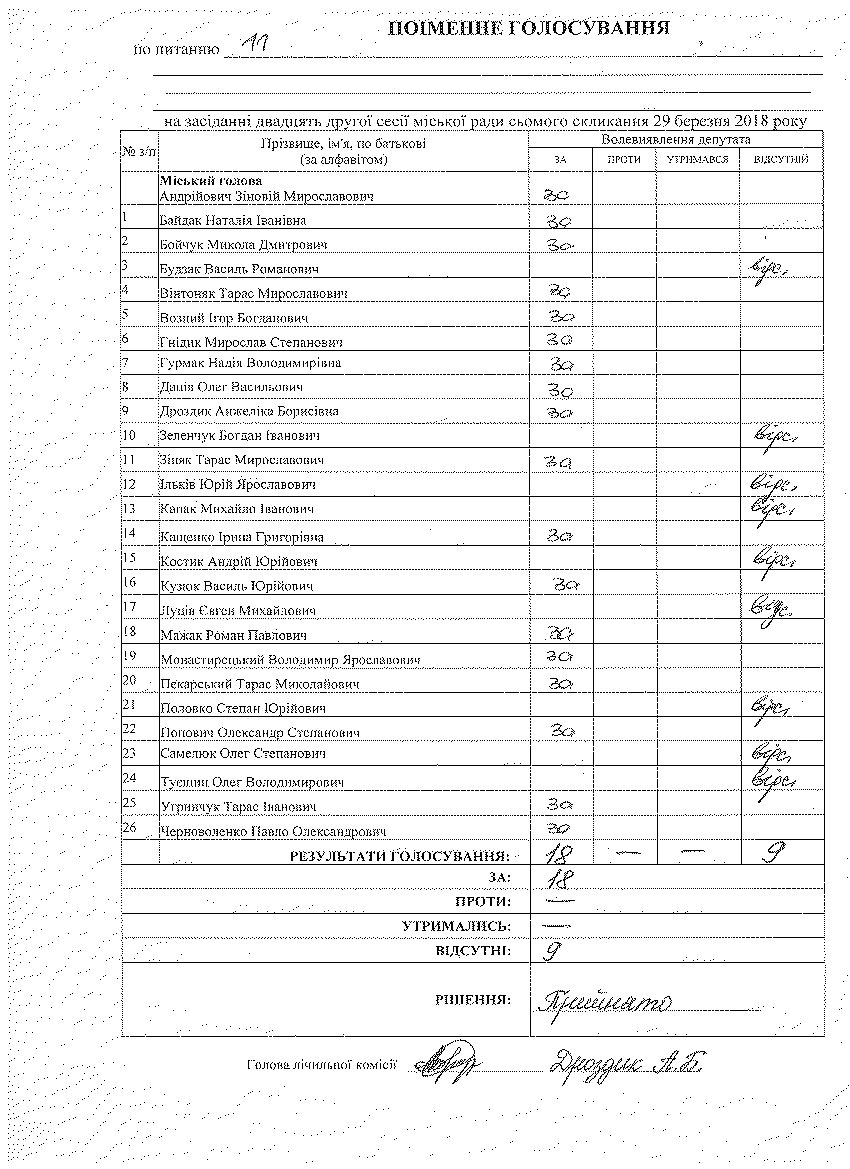 ПОІМЕННЕ ГОЛОСУВАННЯ
по питанню 11
на засіданні двадцять другої сесії міської ради сьомого скликання 29 березня 2018 року
№ з/п Прізвище, ім'я, по батькові (за алфавітом) Волевиявлення депутата
ЗА ПРОТИ УТРИМАВСЯ ВІДСУТНІЙ
Міський голова
Андрійович Зіновій Мирославович за
1 Байдак Наталія Іванівна за
2 Бойчук Микола Дмитрович за
3 Будзак Василь Романович відс.
4 Вінтоняк Тарас Мирославович за
5 Возний Ігор Богданович за
6 Гнідик Мирослав Степанович за
7 Гурмак Надія Володимирівна за
8 Дація Олег Васильович за
9 Дроздик Анжеліка Борисівна за
10 Зеленчук Богдан Іванович відс.
11 Зіняк Тарас Мирославович за
12 Ільків Юрій Ярославович відс.
13 Капак Михайло Іванович відс.
14 Кащенко Ірина Григорівна за
15 Костик Андрій Юрійович відс.
16 Кузюк Василь Юрійович за
17 Луців Євген Михайлович відс.
18 Мажак Роман Павлович за
19 Монастирецький Володимир Ярославович за
20 Пекарський Тарас Миколайович за
21 Половко Степан Юрійович відс.
22 Попович Олександр Степанович за
23 Самелюк Олег Степанович відс.
24 Олег Володимирович відс.
25 Угринчук Тарас Іванович за
26 Черноволенко Павло Олександрович за
РЕЗУЛЬТАТИ ГОЛОСУВАННЯ: 18 — — 9
ЗА: 18
ПРОТИ: —
УТРИМАЛИСЬ: —
ВІДСУТНІ: 9
РІШЕННЯ: Прийнято
Голова лічильної комісії Дроздик А.Б.